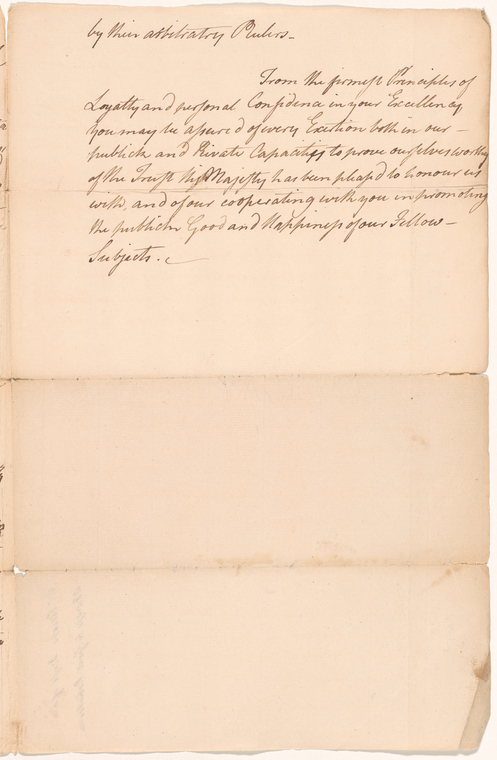 by their arbitratry Rulers–
From the firmest Principles of
Loyalty and personal Confidence in your Excellency
You may be assured of every Exertion both in our –
publick and Private Capacitys to prove ourselves worthy
of the Trust his Majesty has been pleas'd to honour us
with, and of our cooperating with you in promoting
the publick Good and Happiness of our Fellow –
Subjects.